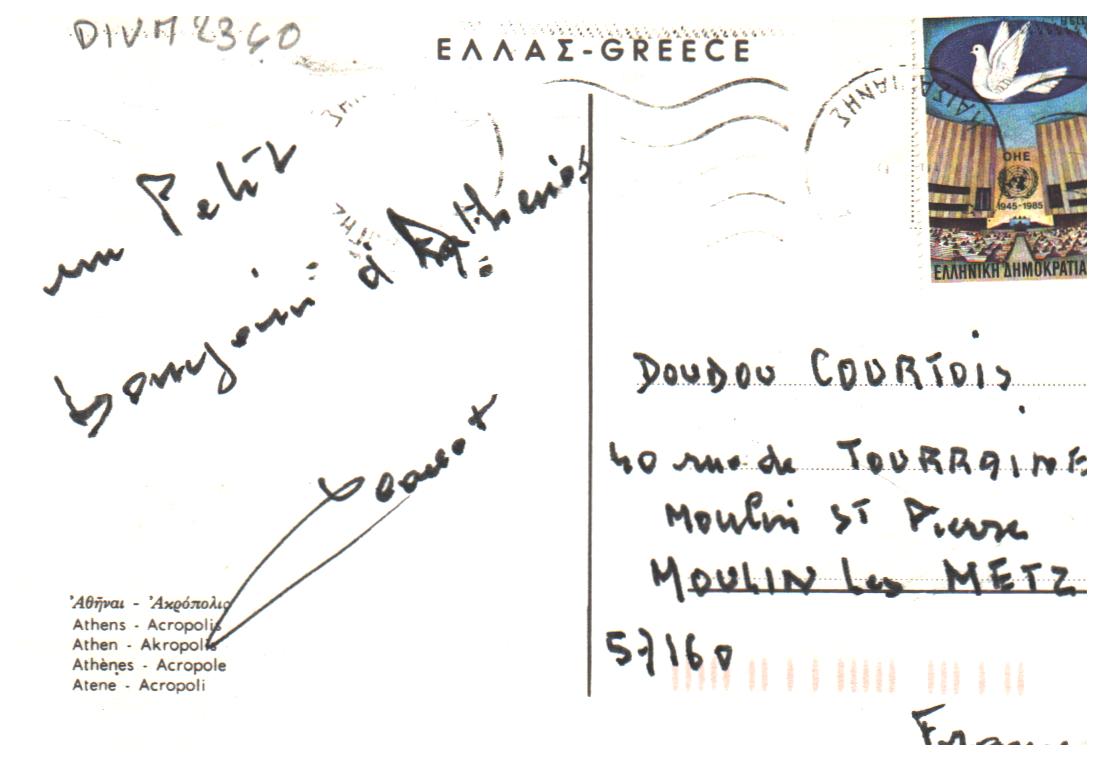 DIVM 2340
ΕΛΛΑΣ-GREECE
un Petit
bonjour d'Athènes
'Αθῆναι - 'Ακρόπολις
Athens - Acropolis
Athen - Akropolis
Athènes - Acropole
Atene - Acropoli
ΙΑΝΗΣ
ΟΗΕ
1945-1985
ΕΛΛΗΝΙΚΗ ΔΗΜΟΚΡΑΤΙΑ
DOUDOU COURTOIS
40 rue de TOURRAINE
Moulin ST Pierre
MOULIN Les METZ
57160